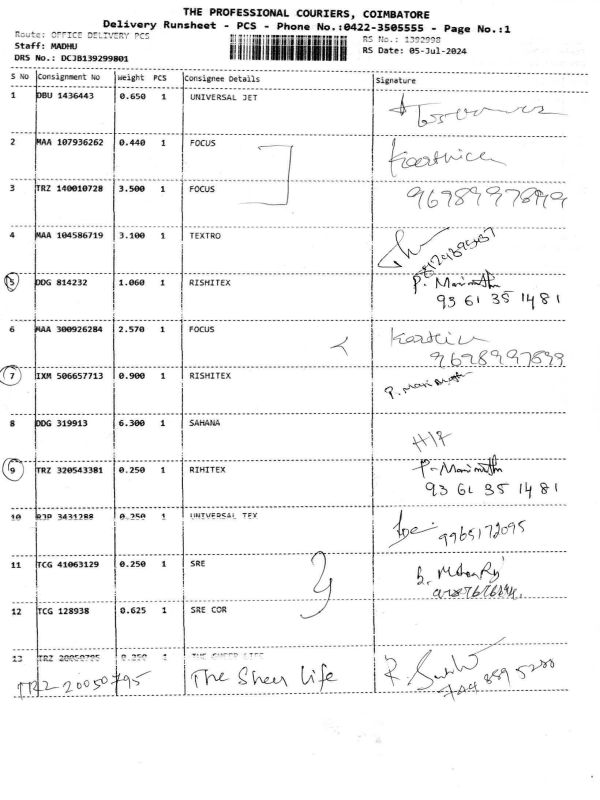 THE PROFESSIONAL COURIERS, COIMBATORE
Delivery Runsheet - PCS - Phone No.:0422-3505555 - Page No.:1
Route: OFFICE DELIVERY PCS
RS No.: 1392998
Staff: MADHU
RS Date: 05-Jul-2024
DRS No.: DCJB139299801
S No Consignment No Weight PCS Consignee Details Signature
1 DBU 1436443 0.650 1 UNIVERSAL JET
2 MAA 107936262 0.440 1 FOCUS Karthick
3 TRZ 140010728 3.500 1 FOCUS 9698997899
4 MAA 104586719 3.100 1 TEXTRO
5 DDG 814232 1.060 1 RISHITEX P. Marimuthu
93 61 35 1481
6 MAA 300926284 2.570 1 FOCUS Karthick
9698997899
7 IXM 506657713 0.900 1 RISHITEX P. Marimuthu
8 DDG 319913 6.300 1 SAHANA H/F
9 TRZ 320543381 0.250 1 RIHITEX P. Marimuthu
93 61 35 1481
10 PJP 3431288 0.250 1 UNIVERSAL TEX 9965172095
11 TCG 41063129 0.250 1 SRE
12 TCG 128938 0.625 1 SRE COR
13 TRZ 20050795 0.250 1 THE SHEER LIFE
TRZ 20050795 The Sheer Life